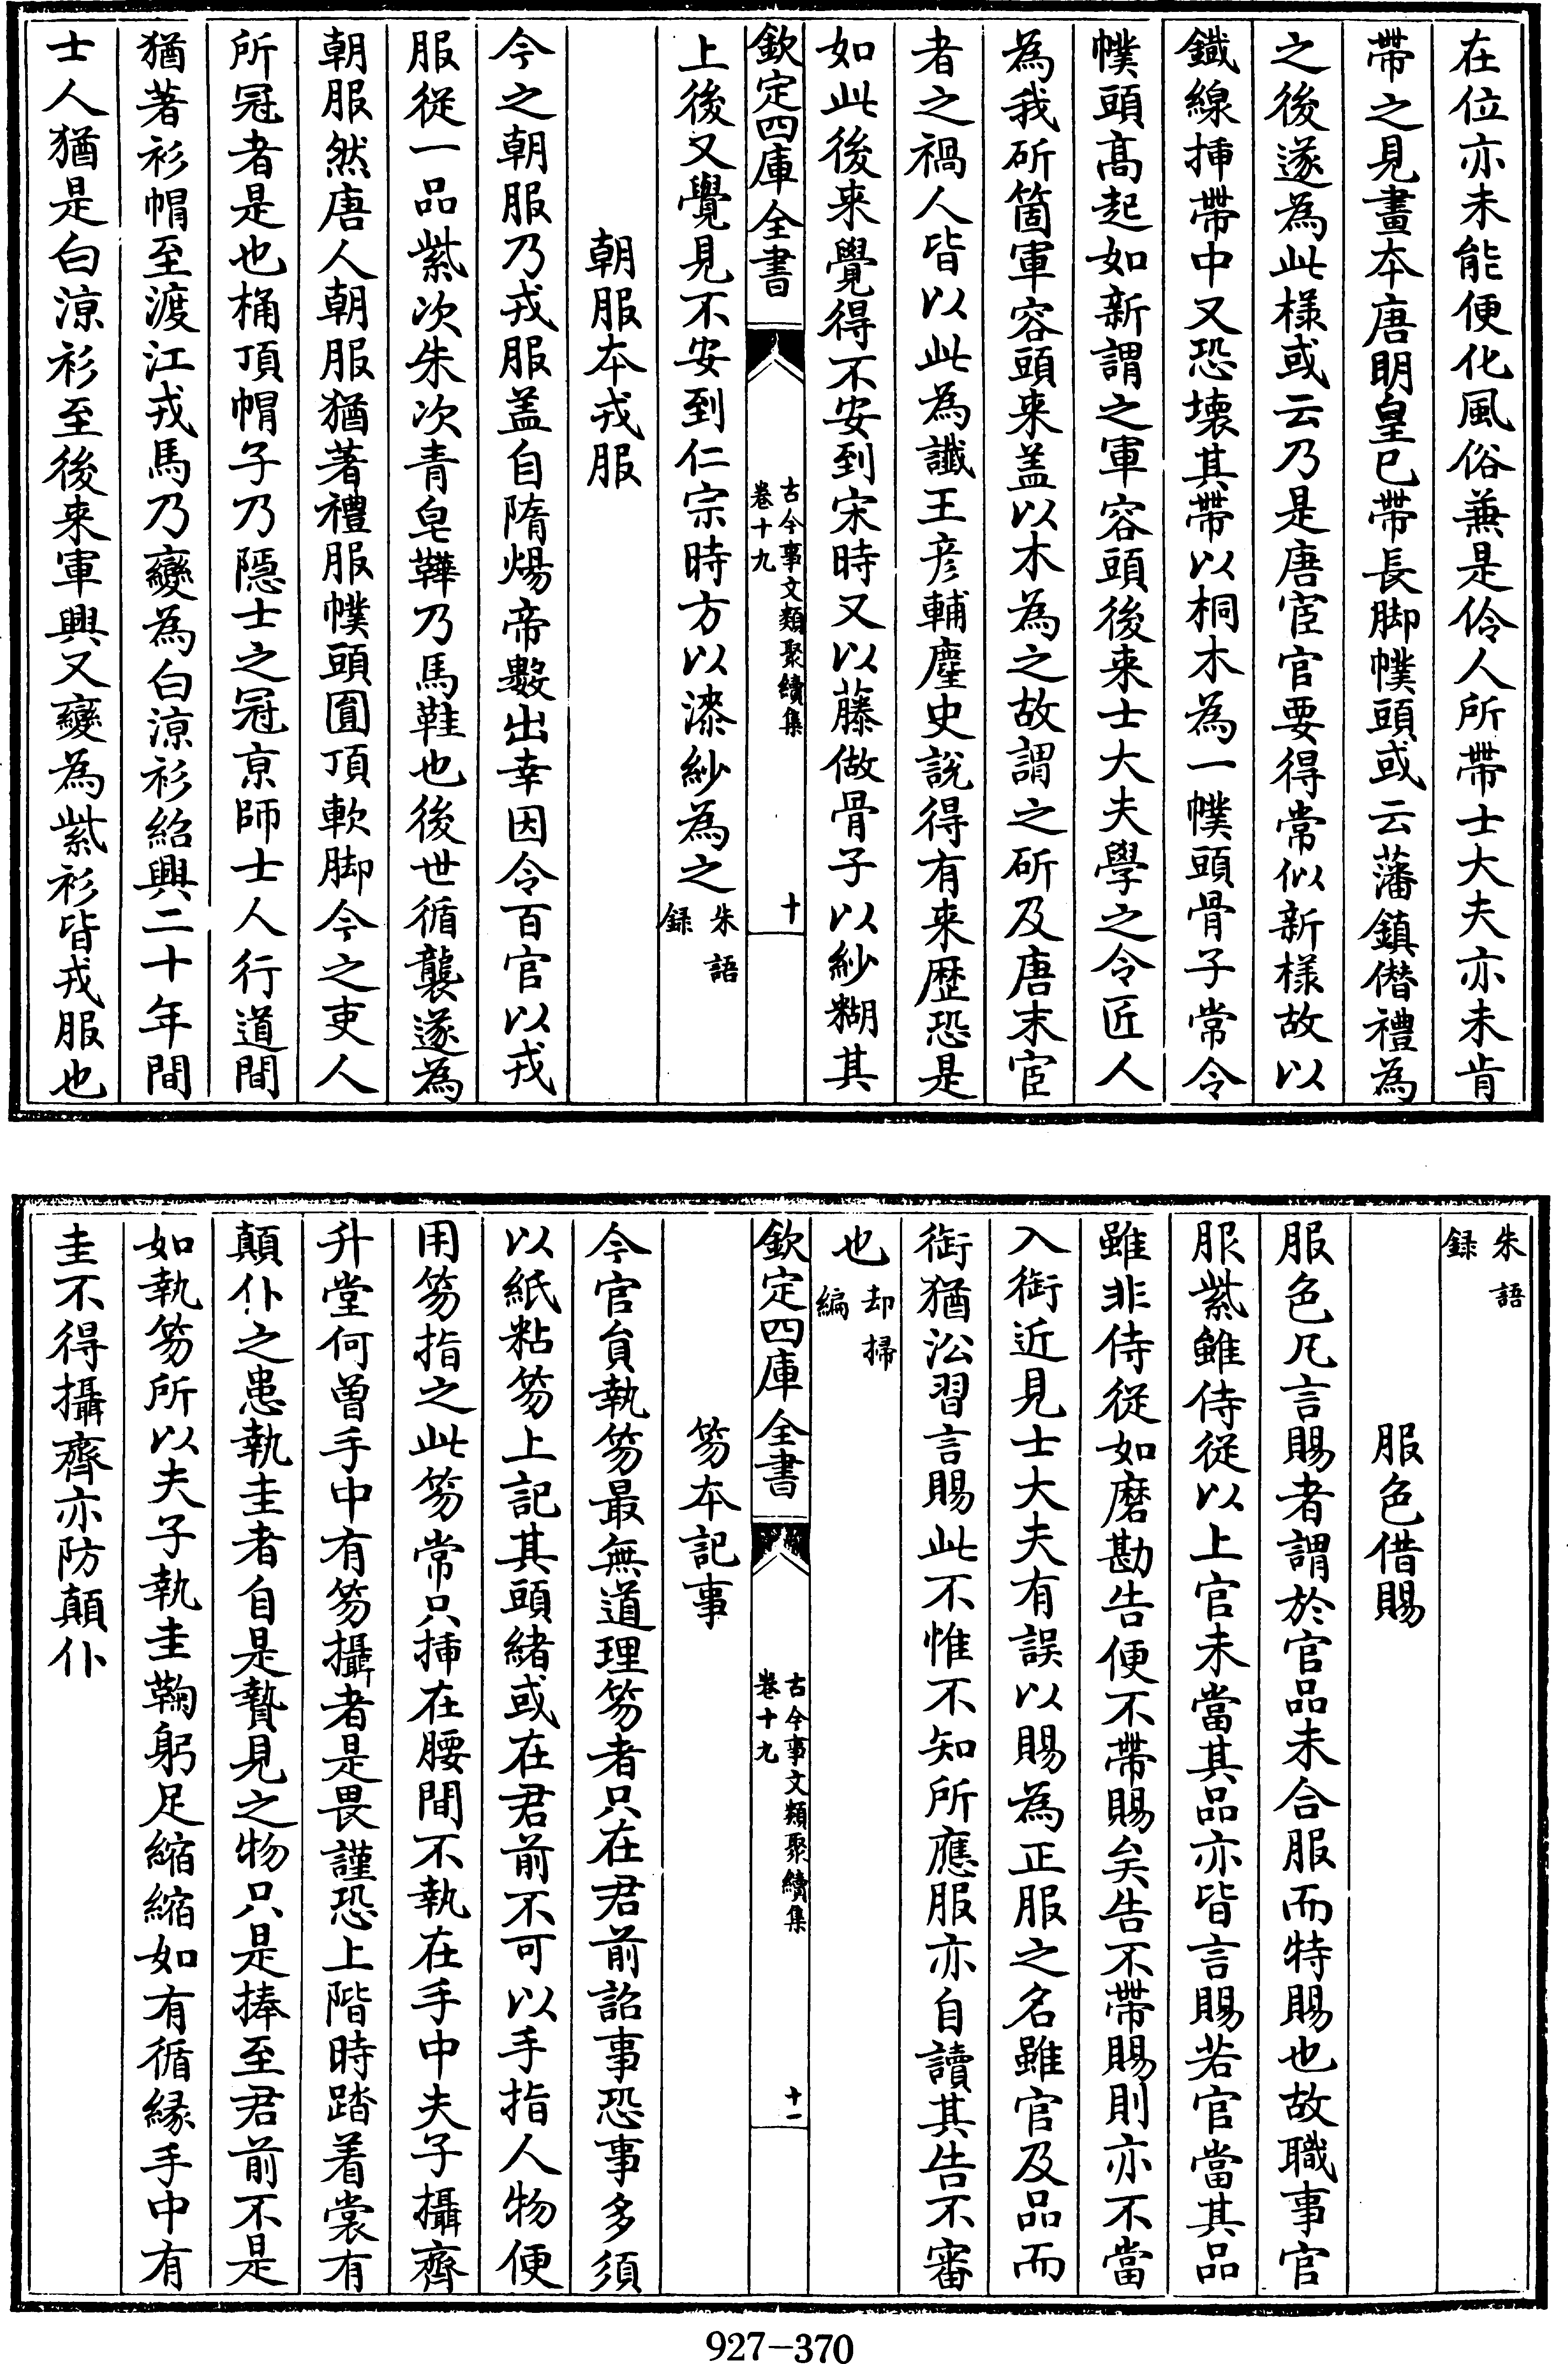 在位亦未能便化風俗兼是伶人所帶士大夫亦未肯
帶之見畫本唐明皇已帶長脚幞頭或云藩鎮僣禮為
之後遂為此樣或云乃是唐宦官要得常似新樣故以
鐵線揷帶中又恐壊其帶以桐木為一幞頭骨子常令
幞頭髙起如新謂之軍容頭後来士大夫學之令匠人
為我斫箇軍容頭来盖以木為之故謂之斫及唐末宦
者之禍人皆以此為讖王彦輔塵史説得有来歴恐是
如此後来覺得不安到宋時又以藤做骨子以紗糊其
欽定四庫全書
古今事文類聚續集
卷十九
十
上後又覺見不安到仁宗時方以漆紗為之朱語
録
朝服本戎服
今之朝服乃戎服盖自隋煬帝數出幸因令百官以戎
服從一品紫次朱次青皂鞾乃馬鞋也後世循襲遂為
朝服然唐人朝服猶著禮服幞頭圎頂軟脚今之吏人
所冠者是也桶頂帽子乃隱士之冠京師士人行道間
猶著衫帽至渡江戎馬乃變為白涼衫紹興二十年間
士人猶是白涼衫至後来軍興又變為紫衫皆戎服也
朱語
録
服色借賜
服色凡言賜者謂於官品未合服而特賜也故職事官
服紫雖侍從以上官未當其品亦皆言賜若官當其品
雖非侍從如磨勘告便不帶賜矣告不帶賜則亦不當
入銜近見士大夫有誤以賜為正服之名雖官及品而
銜猶㳂習言賜此不惟不知所應服亦自讀其告不審
也却掃
編
欽定四庫全書
古今事文類聚續集
卷十九
十一
笏本記事
今官貟執笏最無道理笏者只在君前詔事恐事多須
以紙粘笏上記其頭緒或在君前不可以手指人物便
用笏指之此笏常只揷在腰間不執在手中夫子攝齊
升堂何曽手中有笏攝者是畏謹恐上階時踏着裳有
顛仆之患執圭者自是贄見之物只是捧至君前不是
如執笏所以夫子執圭鞠躬足縮縮如有循縁手中有
圭不得攝齊亦防顛仆
927-370